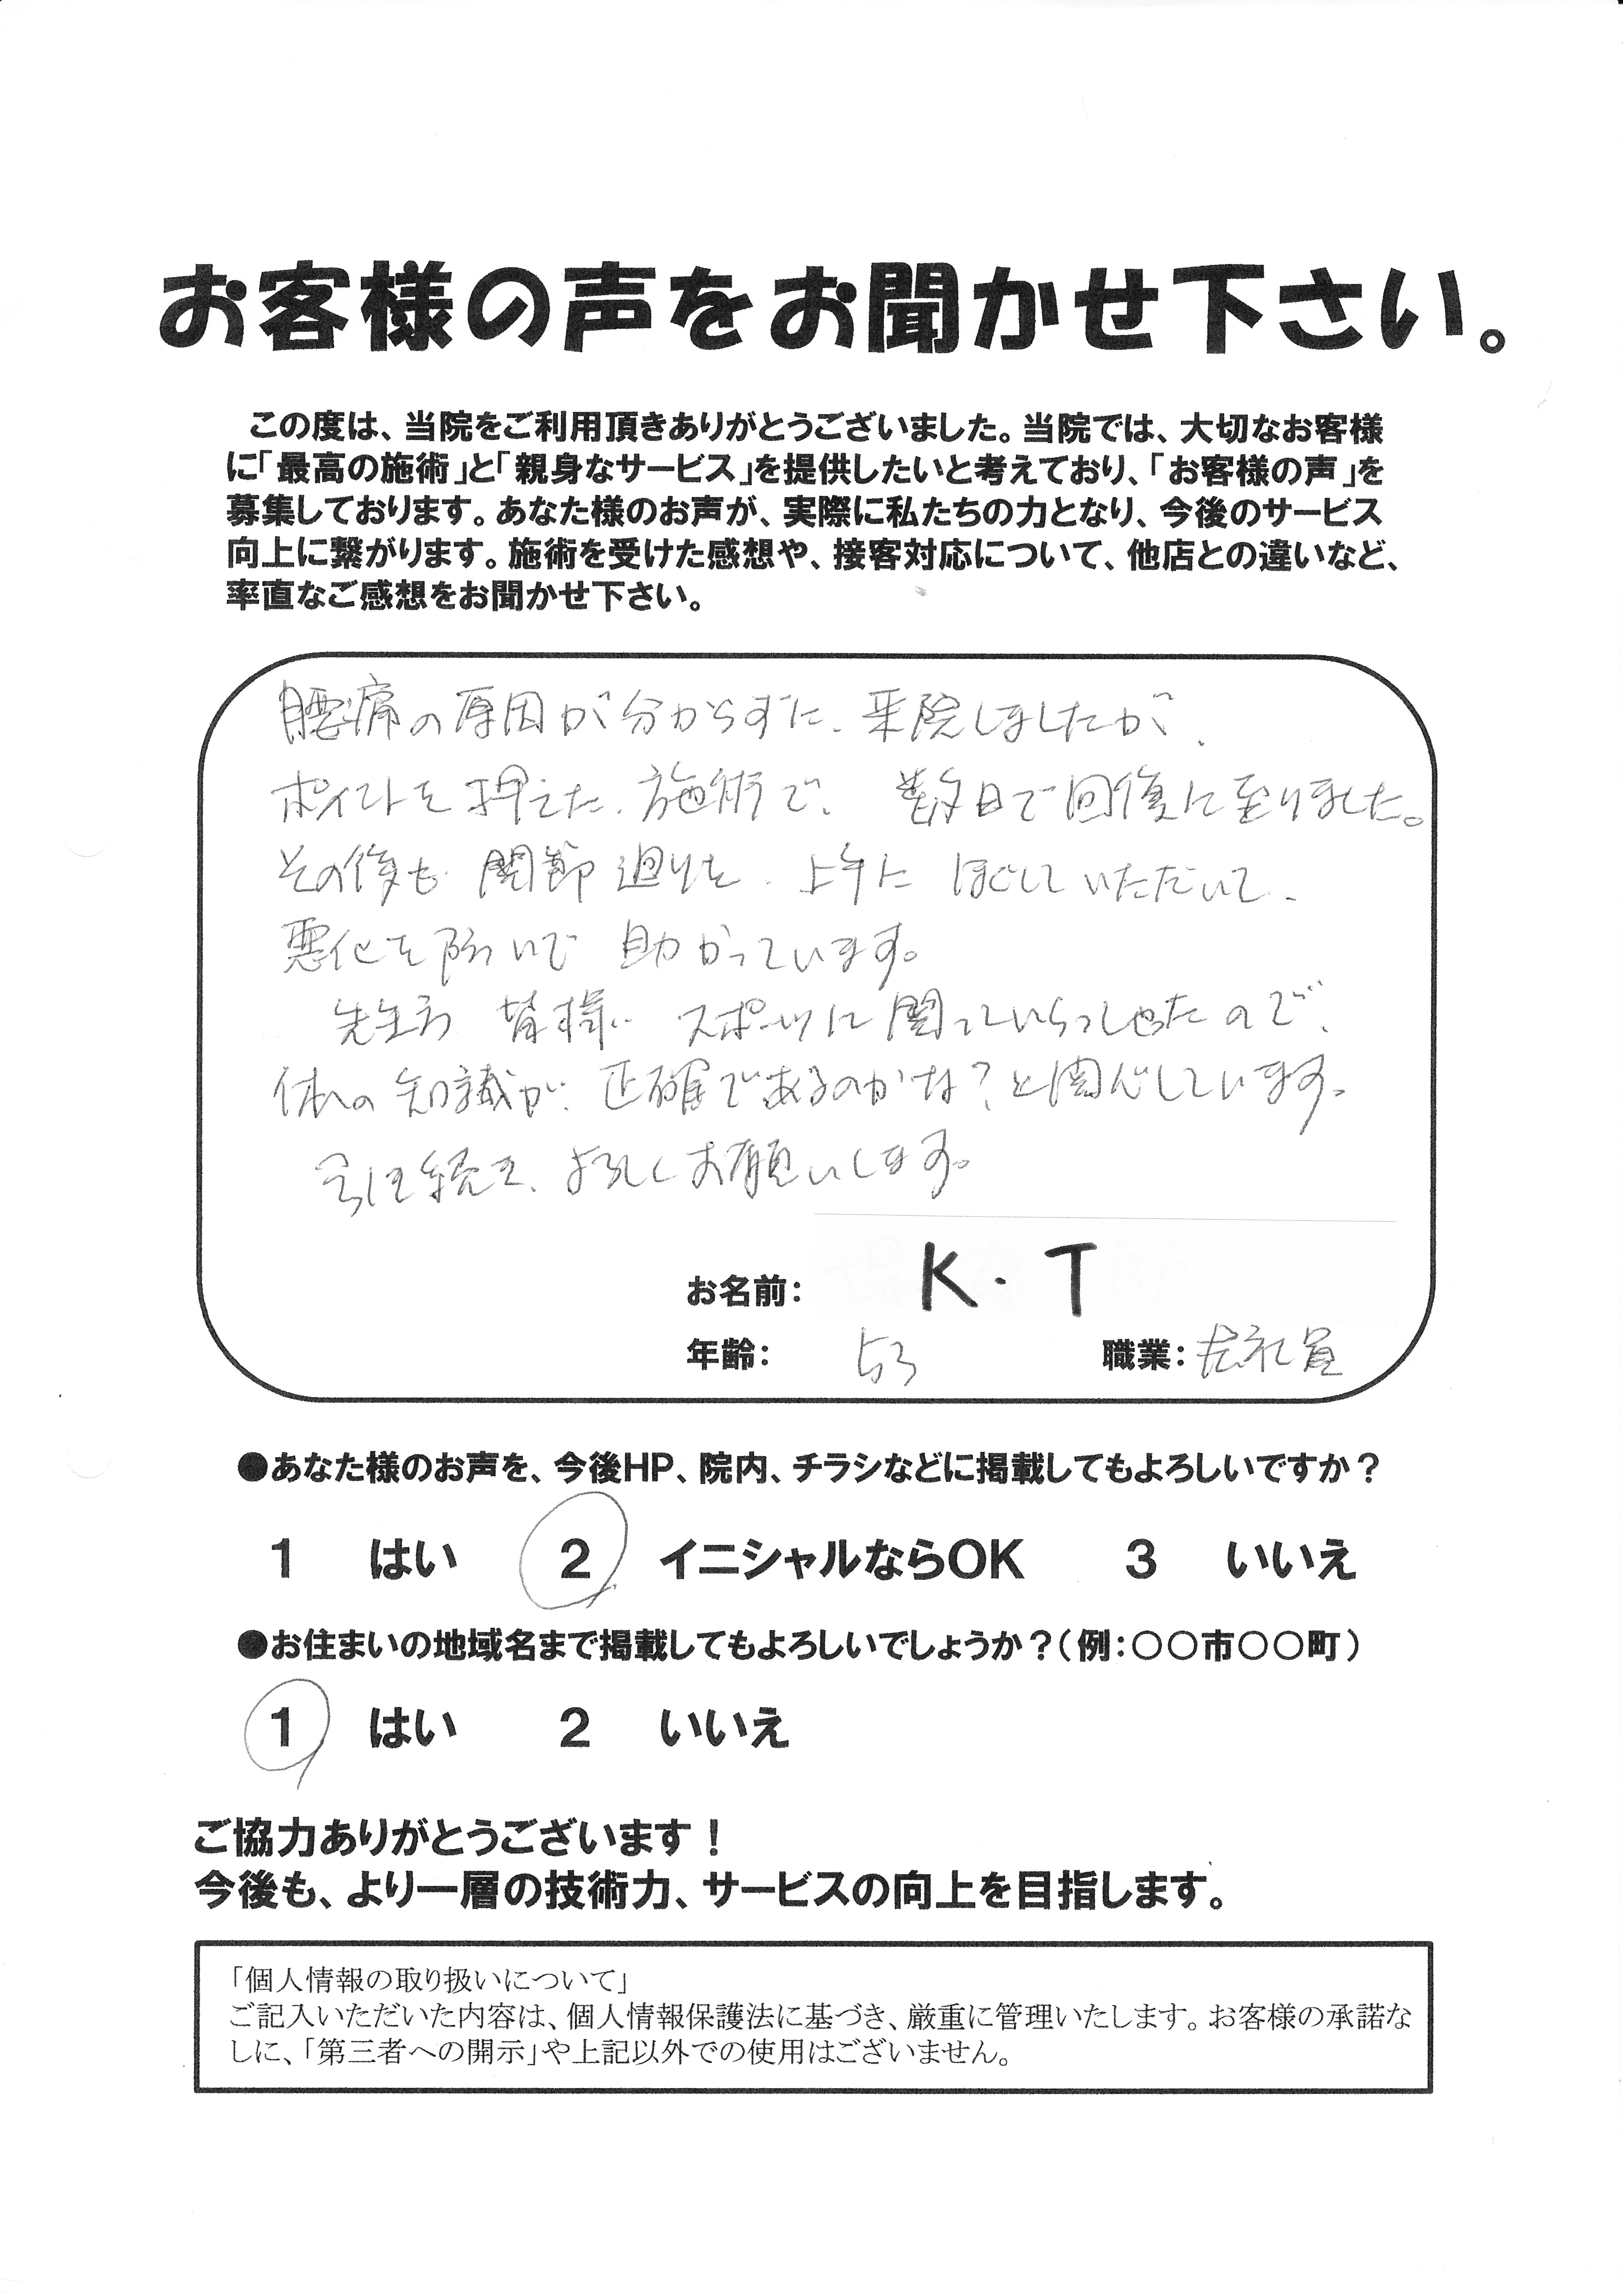 お客様の声をお聞かせ下さい。
この度は、当院をご利用頂きありがとうございました。当院では、大切なお客様
に「最高の施術」と「親身なサービス」を提供したいと考えており、「お客様の声」を
募集しております。あなた様のお声が、実際に私たちの力となり、今後のサービス
向上に繋がります。施術を受けた感想や、接客対応について、他店との違いなど、
率直なご感想をお聞かせ下さい。
腰痛の原因が分からずに、来院しましたが、
ポイントを押えた、施術で、数日で回復に至りました。
その後も関節週りを、上手にほぐしていただいて、
悪化を防いで助かっています。
先生方皆様スポーツに関っていらっしゃたので、
体への知識が、正確であるのかな？と関心しています。
引き続き、よろしくお願いします。
お名前： K・T
年齢： 53 職業：
●あなた様のお声を、今後HP、院内、チラシなどに掲載してもよろしいですか？
1 はい 2 イニシャルならOK 3 いいえ
●お住まいの地域名まで掲載してもよろしいでしょうか？（例：〇〇市〇〇町）
1 はい 2 いいえ
ご協力ありがとうございます！
今後も、より一層の技術力、サービスの向上を目指します。
「個人情報の取り扱いについて」
ご記入いただいた内容は、個人情報保護法に基づき、厳重に管理いたします。お客様の承諾な
しに、「第三者への開示」や上記以外での使用はございません。